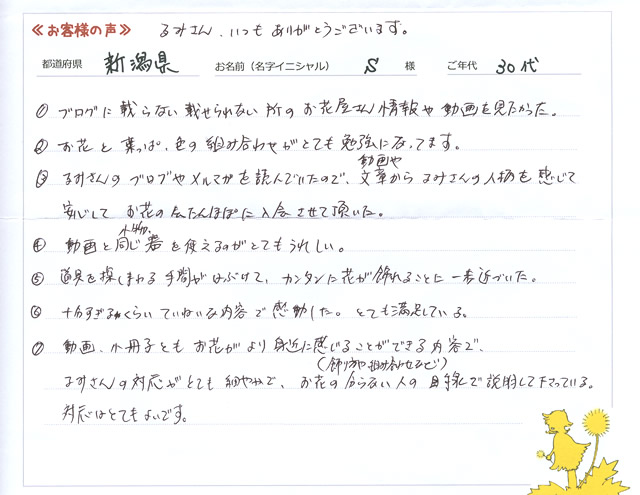 ≪お客様の声≫ るみさん、いつもありがとうございます。
都道府県 新潟県 お名前（名字イニシャル） S 様 ご年代 30代
① ブログに載らない載せられない所のお花屋さん情報や動画を見たかった。
② お花と葉っぱ、色の組み合わせがとても勉強になってます。
動画や
③ るみさんのブログやメルマガを読んでいたので、文章からるみさんの人柄を感じて
安心して お花のたんぽぽに入会させて頂いた。
小物、
④ 動画と同じ器を使えるのがとてもうれしい。
⑤ 道具を探しまわる手間がはぶけて、カンタンに花が飾れることに一歩近づいた。
⑥ 十分すぎるくらいていねいな内容で感動した。とても満足している。
⑦ 動画、小冊子ともお花がより身近に感じることができる内容で、
（飾り方や組み合わせなど）
るみさんの対応がとても細やかで、お花の分らない人の目線で説明して下さっている。
対応はとてもよいです。